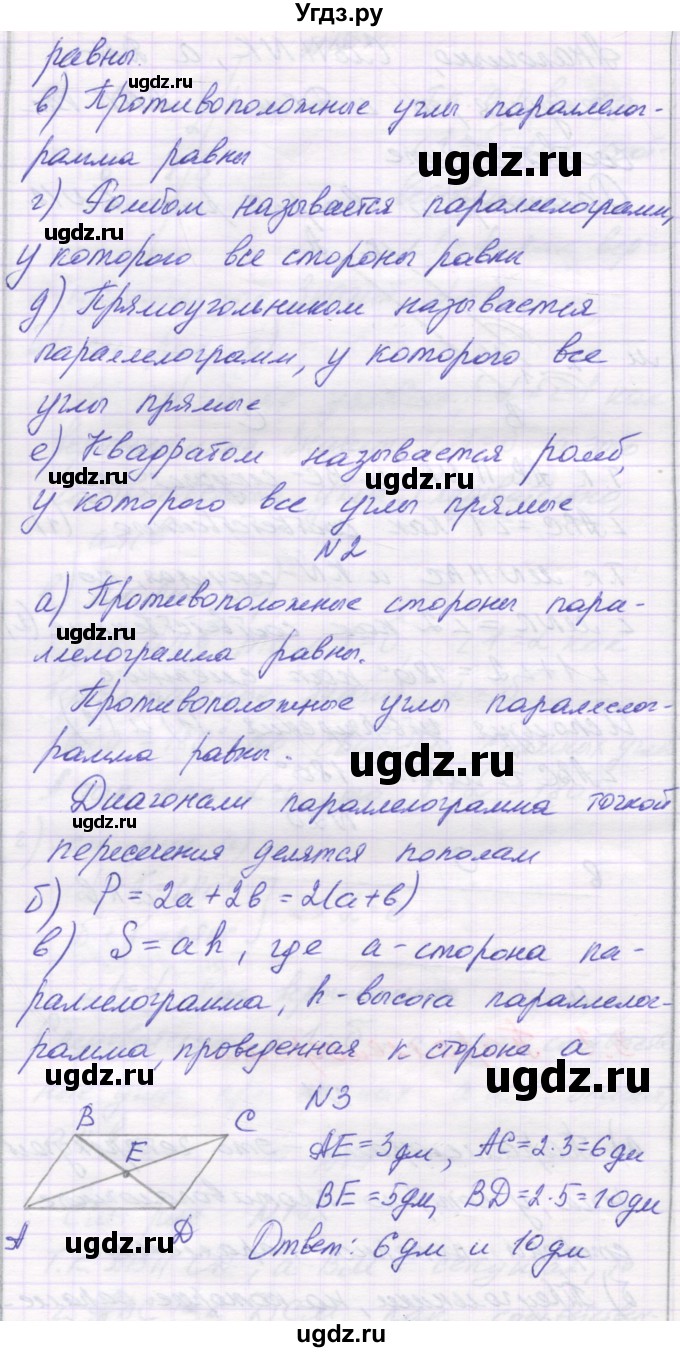 Угдз.ру
равны.
ugdz.ru
в) Противоположные углы параллелог-
рамма равны
ugdz.ru
г) Ромбом называется параллелограмм,
ugdz.ru
у которого все стороны равны
д) Прямоугольником называется
параллелограмм, у которого все
углы прямые
е) Квадратом называется ромб,
ugdz.ru ugdz.ru
у которого все углы прямые
N2
а) Противоположные стороны пара-
ugdz.ru
ллелограмма равны.
Противоположные углы параллелог-
рамма равны.
ugdz.ru
Диагонали параллелограмма точкой
ugdz.ru
пересечения делятся пополам
б) P = 2a + 2b = 2(a + b)
в) S = ah, где a - сторона па-
раллелограмма, h - высота параллелог-
рамма, проведенная к стороне a
ugdz.ru ugdz.ru
N3
B C
E
AE = 3дм, AC = 2·3 = 6дм
BE = 5дм, BD = 2·5 = 10дм
A D
ugdz.ru
Ответ: 6дм и 10дм
ugdz.ru